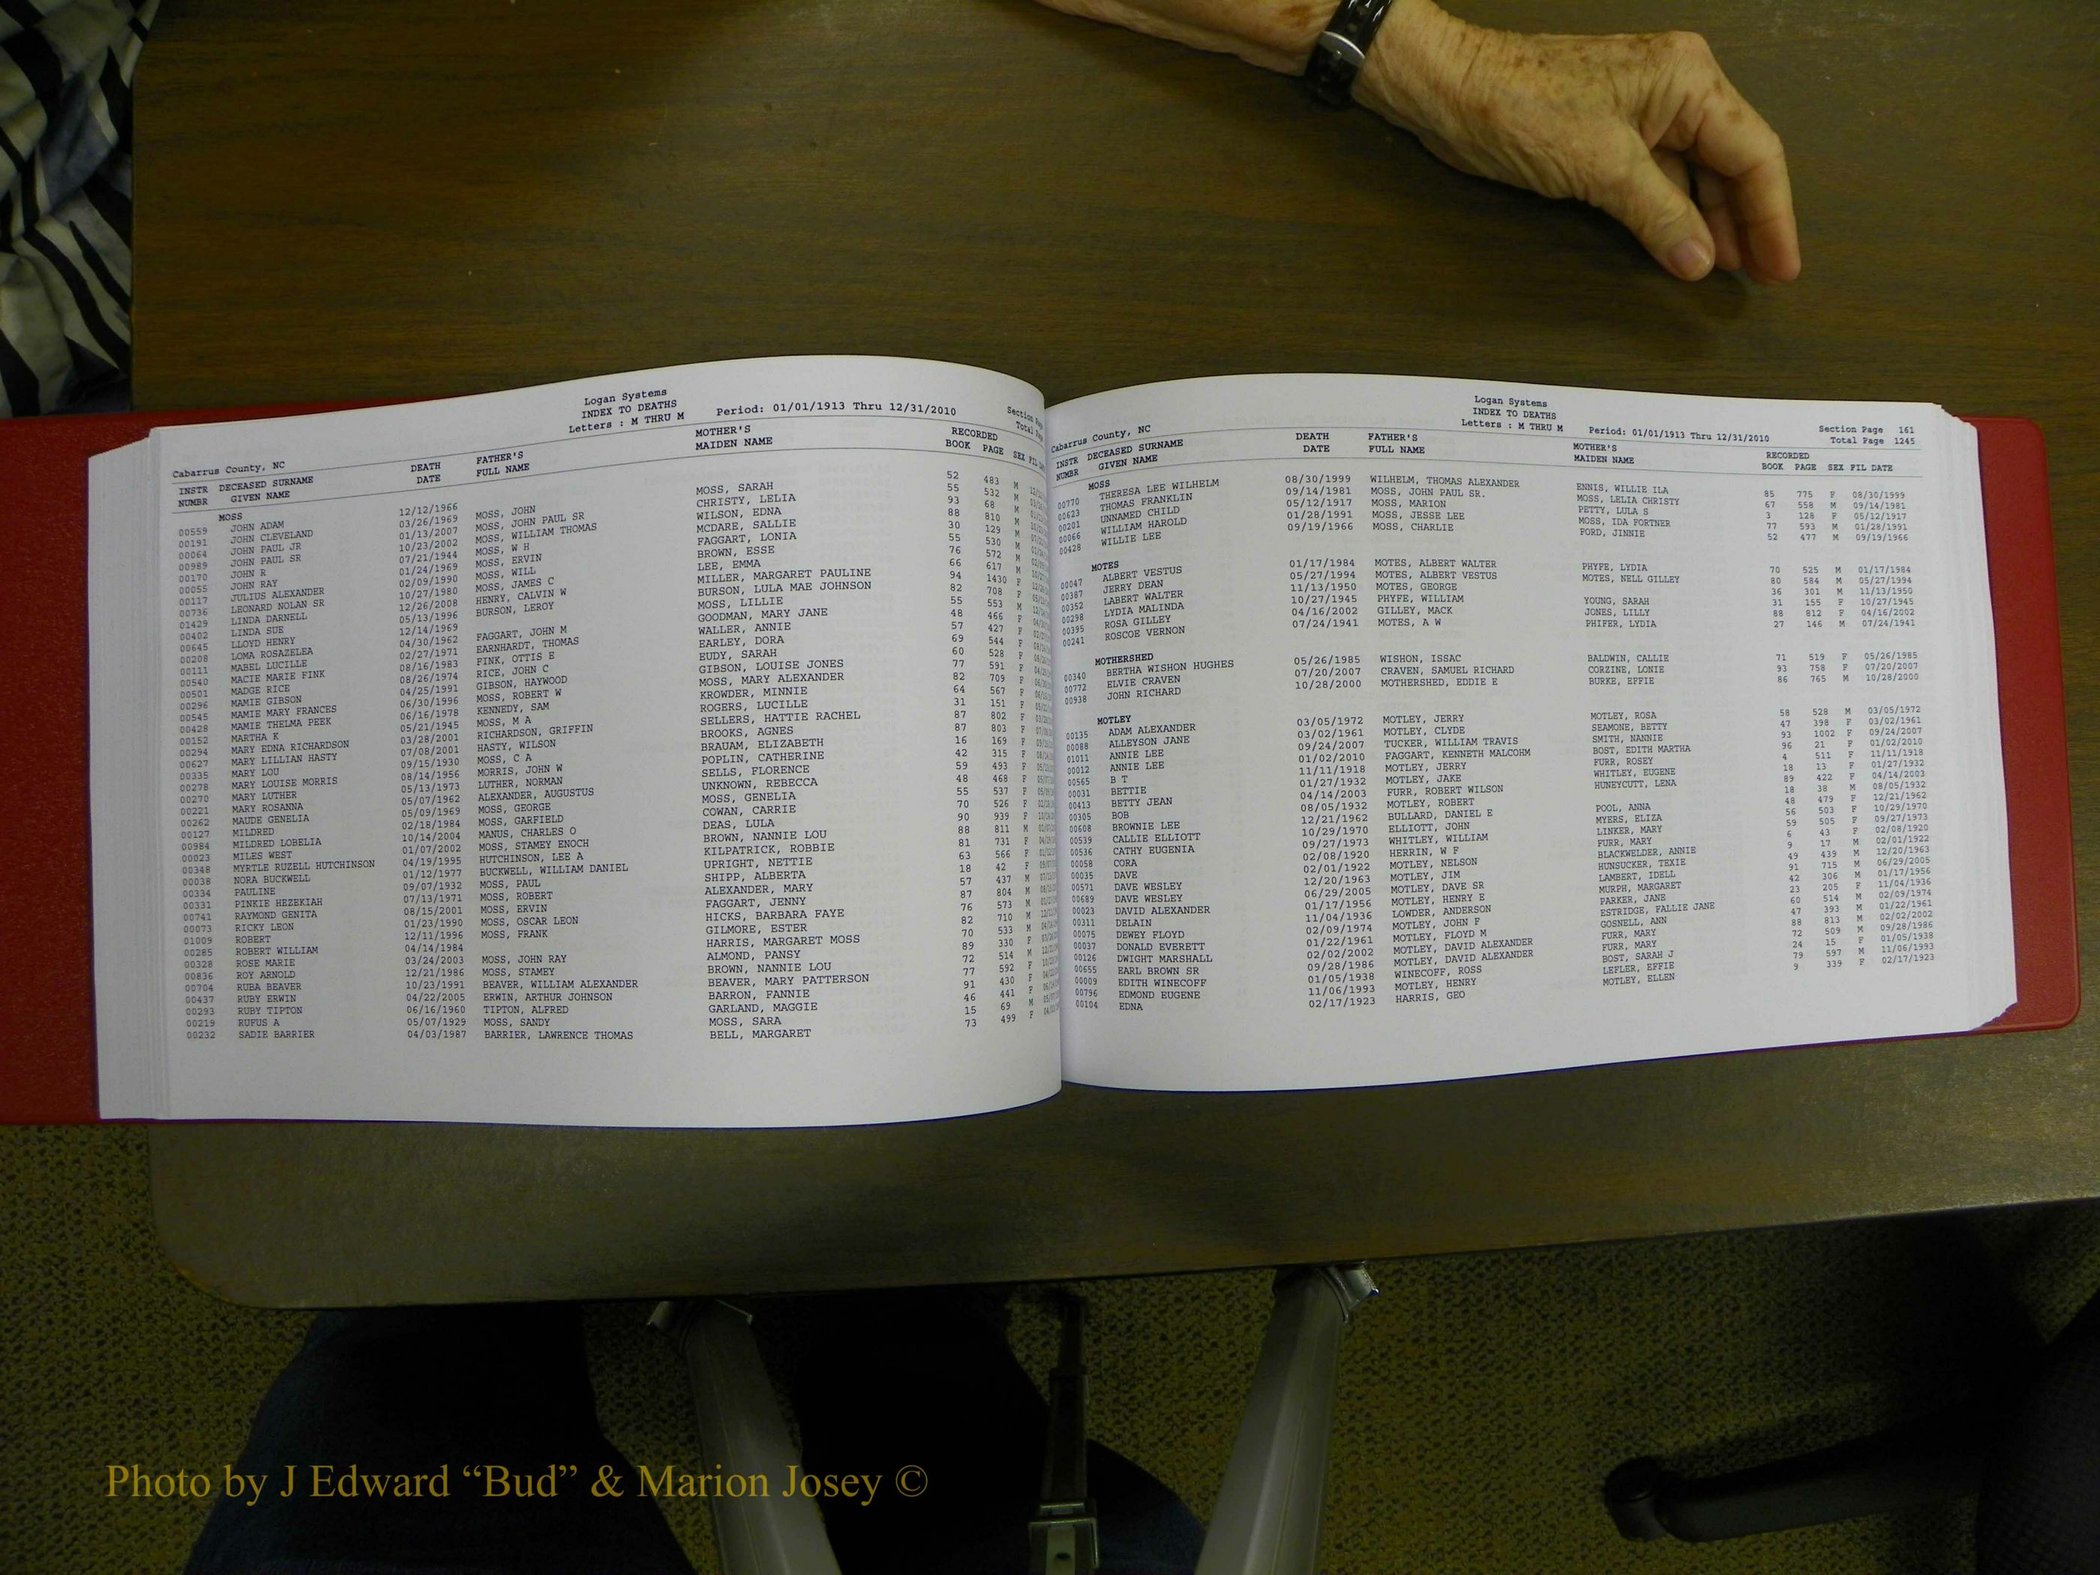 Logan Systems
INDEX TO DEATHS
Letters : M THRU M Period: 01/01/1913 Thru 12/31/2010
Cabarrus County, NC
INSTR NUMBR DECEASED SURNAME GIVEN NAME DEATH DATE FATHER'S FULL NAME MOTHER'S MAIDEN NAME RECORDED BOOK PAGE SEX
MOSS
00559 JOHN ADAM 12/12/1966 52 483 M
00191 JOHN CLEVELAND 03/26/1969 MOSS, JOHN MOSS, SARAH 55 532 M
00064 JOHN PAUL JR 01/13/2007 MOSS, JOHN PAUL SR CHRISTY, LELIA 93 68 M
00989 JOHN PAUL SR 10/23/2002 MOSS, WILLIAM THOMAS WILSON, EDNA 88 810 M
00170 JOHN R 07/21/1944 MOSS, W H MCDARE, SALLIE 30 129 M
00055 JOHN RAY 01/24/1969 MOSS, ERVIN FAGGART, LONIA 55 530 M
00117 JULIUS ALEXANDER 02/09/1990 MOSS, WILL BROWN, ESSE 76 572 M
00736 LEONARD NOLAN SR 10/27/1980 MOSS, JAMES C LEE, EMMA 66 617 M
01429 LINDA DARNELL 12/26/2008 HENRY, CALVIN W MILLER, MARGARET PAULINE 94 1430 F
00402 LINDA SUE 05/13/1996 BURSON, LEROY BURSON, LULA MAE JOHNSON 82 708 F
00645 LLOYD HENRY 12/14/1969 MOSS, LILLIE 55 553 M
00208 LOMA ROSAZELEA 04/30/1962 FAGGART, JOHN M GOODMAN, MARY JANE 48 466 F
00111 MABEL LUCILLE 02/27/1971 EARNHARDT, THOMAS WALLER, ANNIE 57 427 F
00540 MACIE MARIE FINK 08/16/1983 FINK, OTTIS E EARLEY, DORA 69 544 F
00501 MADGE RICE 08/26/1974 RICE, JOHN C EUDY, SARAH 60 528 F
00296 MAMIE GIBSON 04/25/1991 GIBSON, HAYWOOD GIBSON, LOUISE JONES 77 591 F
00545 MAMIE MARY FRANCES 06/30/1996 MOSS, ROBERT W MOSS, MARY ALEXANDER 82 709 F
00428 MAMIE THELMA PEEK 06/16/1978 KENNEDY, SAM KROWDER, MINNIE 64 567 F
00152 MARTHA K 05/21/1945 MOSS, M A ROGERS, LUCILLE 31 151 F
00294 MARY EDNA RICHARDSON 03/28/2001 RICHARDSON, GRIFFIN SELLERS, HATTIE RACHEL 87 802 F
00627 MARY LILLIAN HASTY 07/08/2001 HASTY, WILSON BROOKS, AGNES 87 803 F
00335 MARY LOU 09/15/1930 MOSS, C A BRAUAM, ELIZABETH 16 169 F
00278 MARY LOUISE MORRIS 08/14/1956 MORRIS, JOHN W POPLIN, CATHERINE 42 315 F
00270 MARY LUTHER 05/13/1973 LUTHER, NORMAN SELLS, FLORENCE 59 493 F
00221 MARY ROSANNA 05/07/1962 ALEXANDER, AUGUSTUS UNKNOWN, REBECCA 48 468 F
00262 MAUDE GENELIA 05/09/1969 MOSS, GEORGE MOSS, GENELIA 55 537 F
00127 MILDRED 02/18/1984 MOSS, GARFIELD COWAN, CARRIE 70 526 F
00984 MILDRED LOBELIA 10/14/2004 MANUS, CHARLES O DEAS, LULA 90 939 F
00023 MILES WEST 01/07/2002 MOSS, STAMEY ENOCH BROWN, NANNIE LOU 88 811 M
00348 MYRTLE RUZELL HUTCHINSON 04/19/1995 HUTCHINSON, LEE A KILPATRICK, ROBBIE 81 731 F
00038 NORA BUCKWELL 01/12/1977 BUCKWELL, WILLIAM DANIEL UPRIGHT, NETTIE 63 566 F
00334 PAULINE 09/07/1932 MOSS, PAUL SHIPP, ALBERTA 18 42 F
00331 PINKIE HEZEKIAH 07/13/1971 MOSS, ROBERT ALEXANDER, MARY 57 437 M
00741 RAYMOND GENITA 08/15/2001 MOSS, ERVIN FAGGART, JENNY 87 804 M
00073 RICKY LEON 01/23/1990 MOSS, OSCAR LEON HICKS, BARBARA FAYE 76 573 M
01009 ROBERT 12/11/1996 MOSS, FRANK GILMORE, ESTER 82 710 M
00285 ROBERT WILLIAM 04/14/1984 HARRIS, MARGARET MOSS 70 533 M
00328 ROSE MARIE 03/24/2003 MOSS, JOHN RAY ALMOND, PANSY 89 330 F
00836 ROY ARNOLD 12/21/1986 MOSS, STAMEY BROWN, NANNIE LOU 72 514 M
00704 RUBA BEAVER 10/23/1991 BEAVER, WILLIAM ALEXANDER BEAVER, MARY PATTERSON 77 592 F
00437 RUBY ERWIN 04/22/2005 ERWIN, ARTHUR JOHNSON BARRON, FANNIE 91 430 F
00293 RUBY TIPTON 06/16/1960 TIPTON, ALFRED GARLAND, MAGGIE 46 441 F
00219 RUFUS A 05/07/1929 MOSS, SANDY MOSS, SARA 15 69 M
00232 SADIE BARRIER 04/03/1987 BARRIER, LAWRENCE THOMAS BELL, MARGARET 73 499 F
Logan Systems
INDEX TO DEATHS
Letters : M THRU M Period: 01/01/1913 Thru 12/31/2010
Section Page 161
Total Page 1245
Cabarrus County, NC
INSTR NUMBR DECEASED SURNAME GIVEN NAME DEATH DATE FATHER'S FULL NAME MOTHER'S MAIDEN NAME RECORDED BOOK PAGE SEX FIL DATE
MOSS
00770 THERESA LEE WILHELM 08/30/1999 WILHELM, THOMAS ALEXANDER ENNIS, WILLIE ILA 85 775 F 08/30/1999
00623 THOMAS FRANKLIN 09/14/1981 MOSS, JOHN PAUL SR. MOSS, LELIA CHRISTY 67 558 M 09/14/1981
00201 UNNAMED CHILD 05/12/1917 MOSS, MARION PETTY, LULA S 3 128 F 05/12/1917
00066 WILLIAM HAROLD 01/28/1991 MOSS, JESSE LEE MOSS, IDA FORTNER 77 593 M 01/28/1991
00428 WILLIE LEE 09/19/1966 MOSS, CHARLIE FORD, JINNIE 52 477 M 09/19/1966
MOTES
00047 ALBERT VESTUS 01/17/1984 MOTES, ALBERT WALTER PHYFE, LYDIA 70 525 M 01/17/1984
00387 JERRY DEAN 05/27/1994 MOTES, ALBERT VESTUS MOTES, NELL GILLEY 80 584 M 05/27/1994
00352 LABERT WALTER 11/13/1950 MOTES, GEORGE 36 301 M 11/13/1950
00298 LYDIA MALINDA 10/27/1945 PHYFE, WILLIAM YOUNG, SARAH 31 155 F 10/27/1945
00395 ROSA GILLEY 04/16/2002 GILLEY, MACK JONES, LILLY 88 812 F 04/16/2002
00241 ROSCOE VERNON 07/24/1941 MOTES, A W PHIFER, LYDIA 27 146 M 07/24/1941
MOTHERSHED
00340 BERTHA WISHON HUGHES 05/26/1985 WISHON, ISSAC BALDWIN, CALLIE 71 519 F 05/26/1985
00772 ELVIE CRAVEN 07/20/2007 CRAVEN, SAMUEL RICHARD CORZINE, LONIE 93 758 F 07/20/2007
00938 JOHN RICHARD 10/28/2000 MOTHERSHED, EDDIE E BURKE, EFFIE 86 765 M 10/28/2000
MOTLEY
00135 ADAM ALEXANDER 03/05/1972 MOTLEY, JERRY MOTLEY, ROSA 58 528 M 03/05/1972
00088 ALLEYSON JANE 03/02/1961 MOTLEY, CLYDE SEAMONE, BETTY 47 398 F 03/02/1961
01011 ANNIE LEE 09/24/2007 TUCKER, WILLIAM TRAVIS SMITH, NANNIE 93 1002 F 09/24/2007
00012 ANNIE LEE 01/02/2010 FAGGART, KENNETH MALCOHM BOST, EDITH MARTHA 96 21 F 01/02/2010
00565 B T 11/11/1918 MOTLEY, JERRY FURR, ROSEY 4 511 F 11/11/1918
00031 BETTIE 01/27/1932 MOTLEY, JAKE WHITLEY, EUGENE 18 13 F 01/27/1932
00413 BETTY JEAN 04/14/2003 FURR, ROBERT WILSON HUNEYCUTT, LENA 89 422 F 04/14/2003
00305 BOB 08/05/1932 MOTLEY, ROBERT 18 38 M 08/05/1932
00608 BROWNIE LEE 12/21/1962 BULLARD, DANIEL E POOL, ANNA 48 479 F 12/21/1962
00539 CALLIE ELLIOTT 10/29/1970 ELLIOTT, JOHN MYERS, ELIZA 56 503 F 10/29/1970
00536 CATHY EUGENIA 09/27/1973 WHITLEY, WILLIAM LINKER, MARY 59 505 F 09/27/1973
00058 CORA 02/08/1920 HERRIN, W F FURR, MARY 6 43 F 02/08/1920
00035 DAVE 02/01/1922 MOTLEY, NELSON BLACKWELDER, ANNIE 9 17 M 02/01/1922
00571 DAVE WESLEY 12/20/1963 MOTLEY, JIM HUNSUCKER, TEXIE 49 439 M 12/20/1963
00689 DAVE WESLEY 06/29/2005 MOTLEY, DAVE SR LAMBERT, IDELL 91 715 M 06/29/2005
00023 DAVID ALEXANDER 01/17/1956 MOTLEY, HENRY E MURPH, MARGARET 42 306 M 01/17/1956
00311 DELAIN 11/04/1936 LOWDER, ANDERSON PARKER, JANE 23 205 F 11/04/1936
00075 DEWEY FLOYD 02/09/1974 MOTLEY, JOHN F ESTRIDGE, FALLIE JANE 60 514 M 02/09/1974
00037 DONALD EVERETT 01/22/1961 MOTLEY, FLOYD M GOSNELL, ANN 47 393 M 01/22/1961
00126 DWIGHT MARSHALL 02/02/2002 MOTLEY, DAVID ALEXANDER FURR, MARY 88 813 M 02/02/2002
00655 EARL BROWN SR 09/28/1986 MOTLEY, DAVID ALEXANDER FURR, MARY 72 509 M 09/28/1986
00009 EDITH WINECOFF 01/05/1938 WINECOFF, ROSS BOST, SARAH J 24 15 F 01/05/1938
00796 EDMOND EUGENE 11/06/1993 MOTLEY, HENRY LEFLER, EFFIE 79 597 M 11/06/1993
00104 EDNA 02/17/1923 HARRIS, GEO MOTLEY, ELLEN 9 339 F 02/17/1923
Photo by J Edward “Bud” & Marion Josey ©